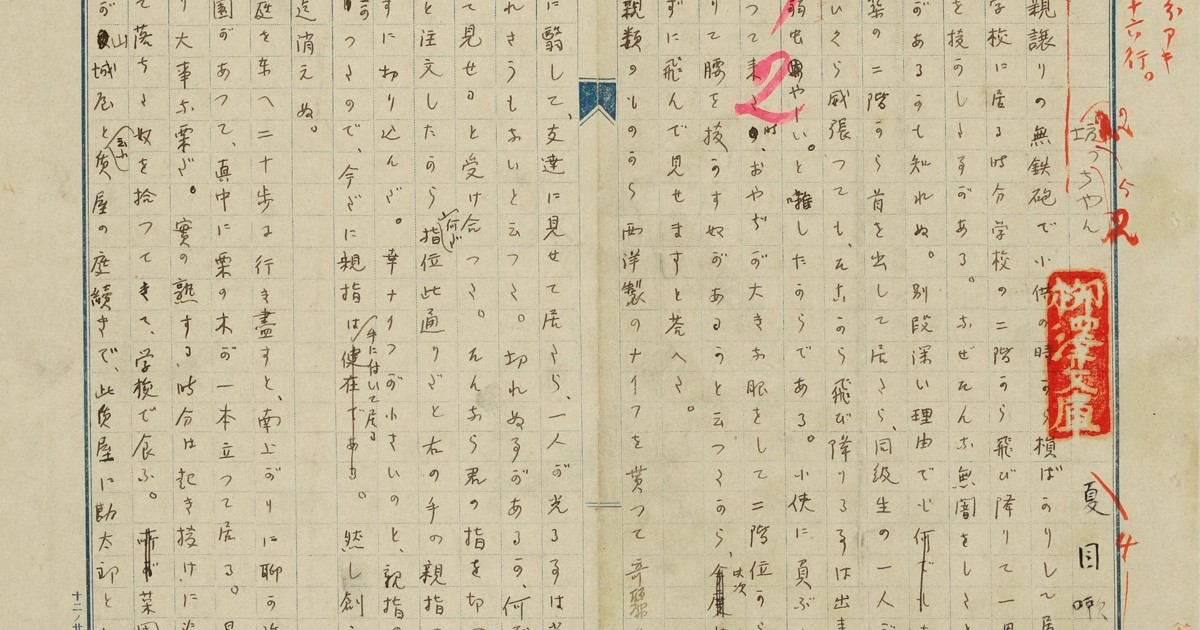 十六行。
坊っちやん
夏目漱
柳澤文庫
親譲りの無鉄砲で小供の時から損ばかりして居
学校に居る時分学校の二階から飛び降りて一週
を抜かした事がある。なぜそんな無闇をしたと
があるかも知れぬ。別段深い理由でも
築の二階から首を出して居たら、同級生の一人が
いくら威張つても、そこから飛び降りる事は出来
弱虫やーい。と囃したからである。小使に負ぶ
つて来た時、おやぢが大きな眼をして二階位から
りて腰を抜かす奴があるかと云つたから、此次
ずに飛んで見せますと答へた。
親類のものから西洋製のナイフを貰つて奇麗
に翳して、友達に見せて居たら、一人が光る事は光
れさうもないと云つた。切れぬ事があるか、何で
て見せると受け合つた。そんなら君の指を切つ
と注文したから何だ指位此通りだと右の手の親指
すに切り込んだ。幸ナイフが小さいのと、親指の
つたので、今だに親指は手に付いて居る。然し創
迄消えぬ。
庭を東へ二十歩に行き盡すと、南上がりに聊か
園があつて、真中に栗の木が一本立つて居る。
り大事な栗だ。實の熟する時分は起き抜けに
て落ちた奴を拾つてきて、学校で食ふ。菜園
が山城屋と云ふ質屋の庭續きで、此質屋に勘太郎と
2
4